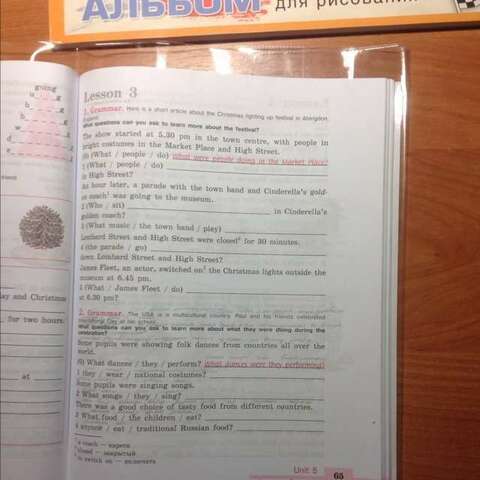 АЛЬБОМ для рисования
going
Lesson 3
1. Grammar. Here is a short article about the Christmas lighting up festival in Abingdon,
What questions can you ask to learn more about the festival?
The show started at 5.30 pm in the town centre, with people in
bright costumes in the Market Place and High Street.
(0) (What / people / do) What were people doing in the Market Place?
1 (What / people / do)
in High Street?
An hour later, a parade with the town band and Cinderella's gold-
en coach¹ was going to the museum.
2 (Who / sit) in Cinderella's
golden coach?
3 (What music / the town band / play)
Lombard Street and High Street were closed² for 30 minutes.
4 (the parade / go)
down Lombard Street and High Street?
James Fleet, an actor, switched on³ the Christmas lights outside the
museum at 6.45 pm.
5 (What / James Fleet / do)
at 6.30 pm?
2. Grammar. The USA is a multicultural country. Paul and his friends celebrated
Day at school.
What questions can you ask to learn more about what they were doing during the
celebration?
Some pupils were showing folk dances from countries all over the
world.
(0) What dances / they / perform? What dances were they performing?
1 they / wear / national costumes?
Some pupils were singing songs.
2 What songs / they / sing?
There was a good choice of tasty food from different countries.
3 What food / the children / eat?
4 anyone / eat / traditional Russian food?
¹ a coach — карета
² closed — закрытый
³ to switch on — включать
Unit 5
65
ay and Christmas
for two hours
at